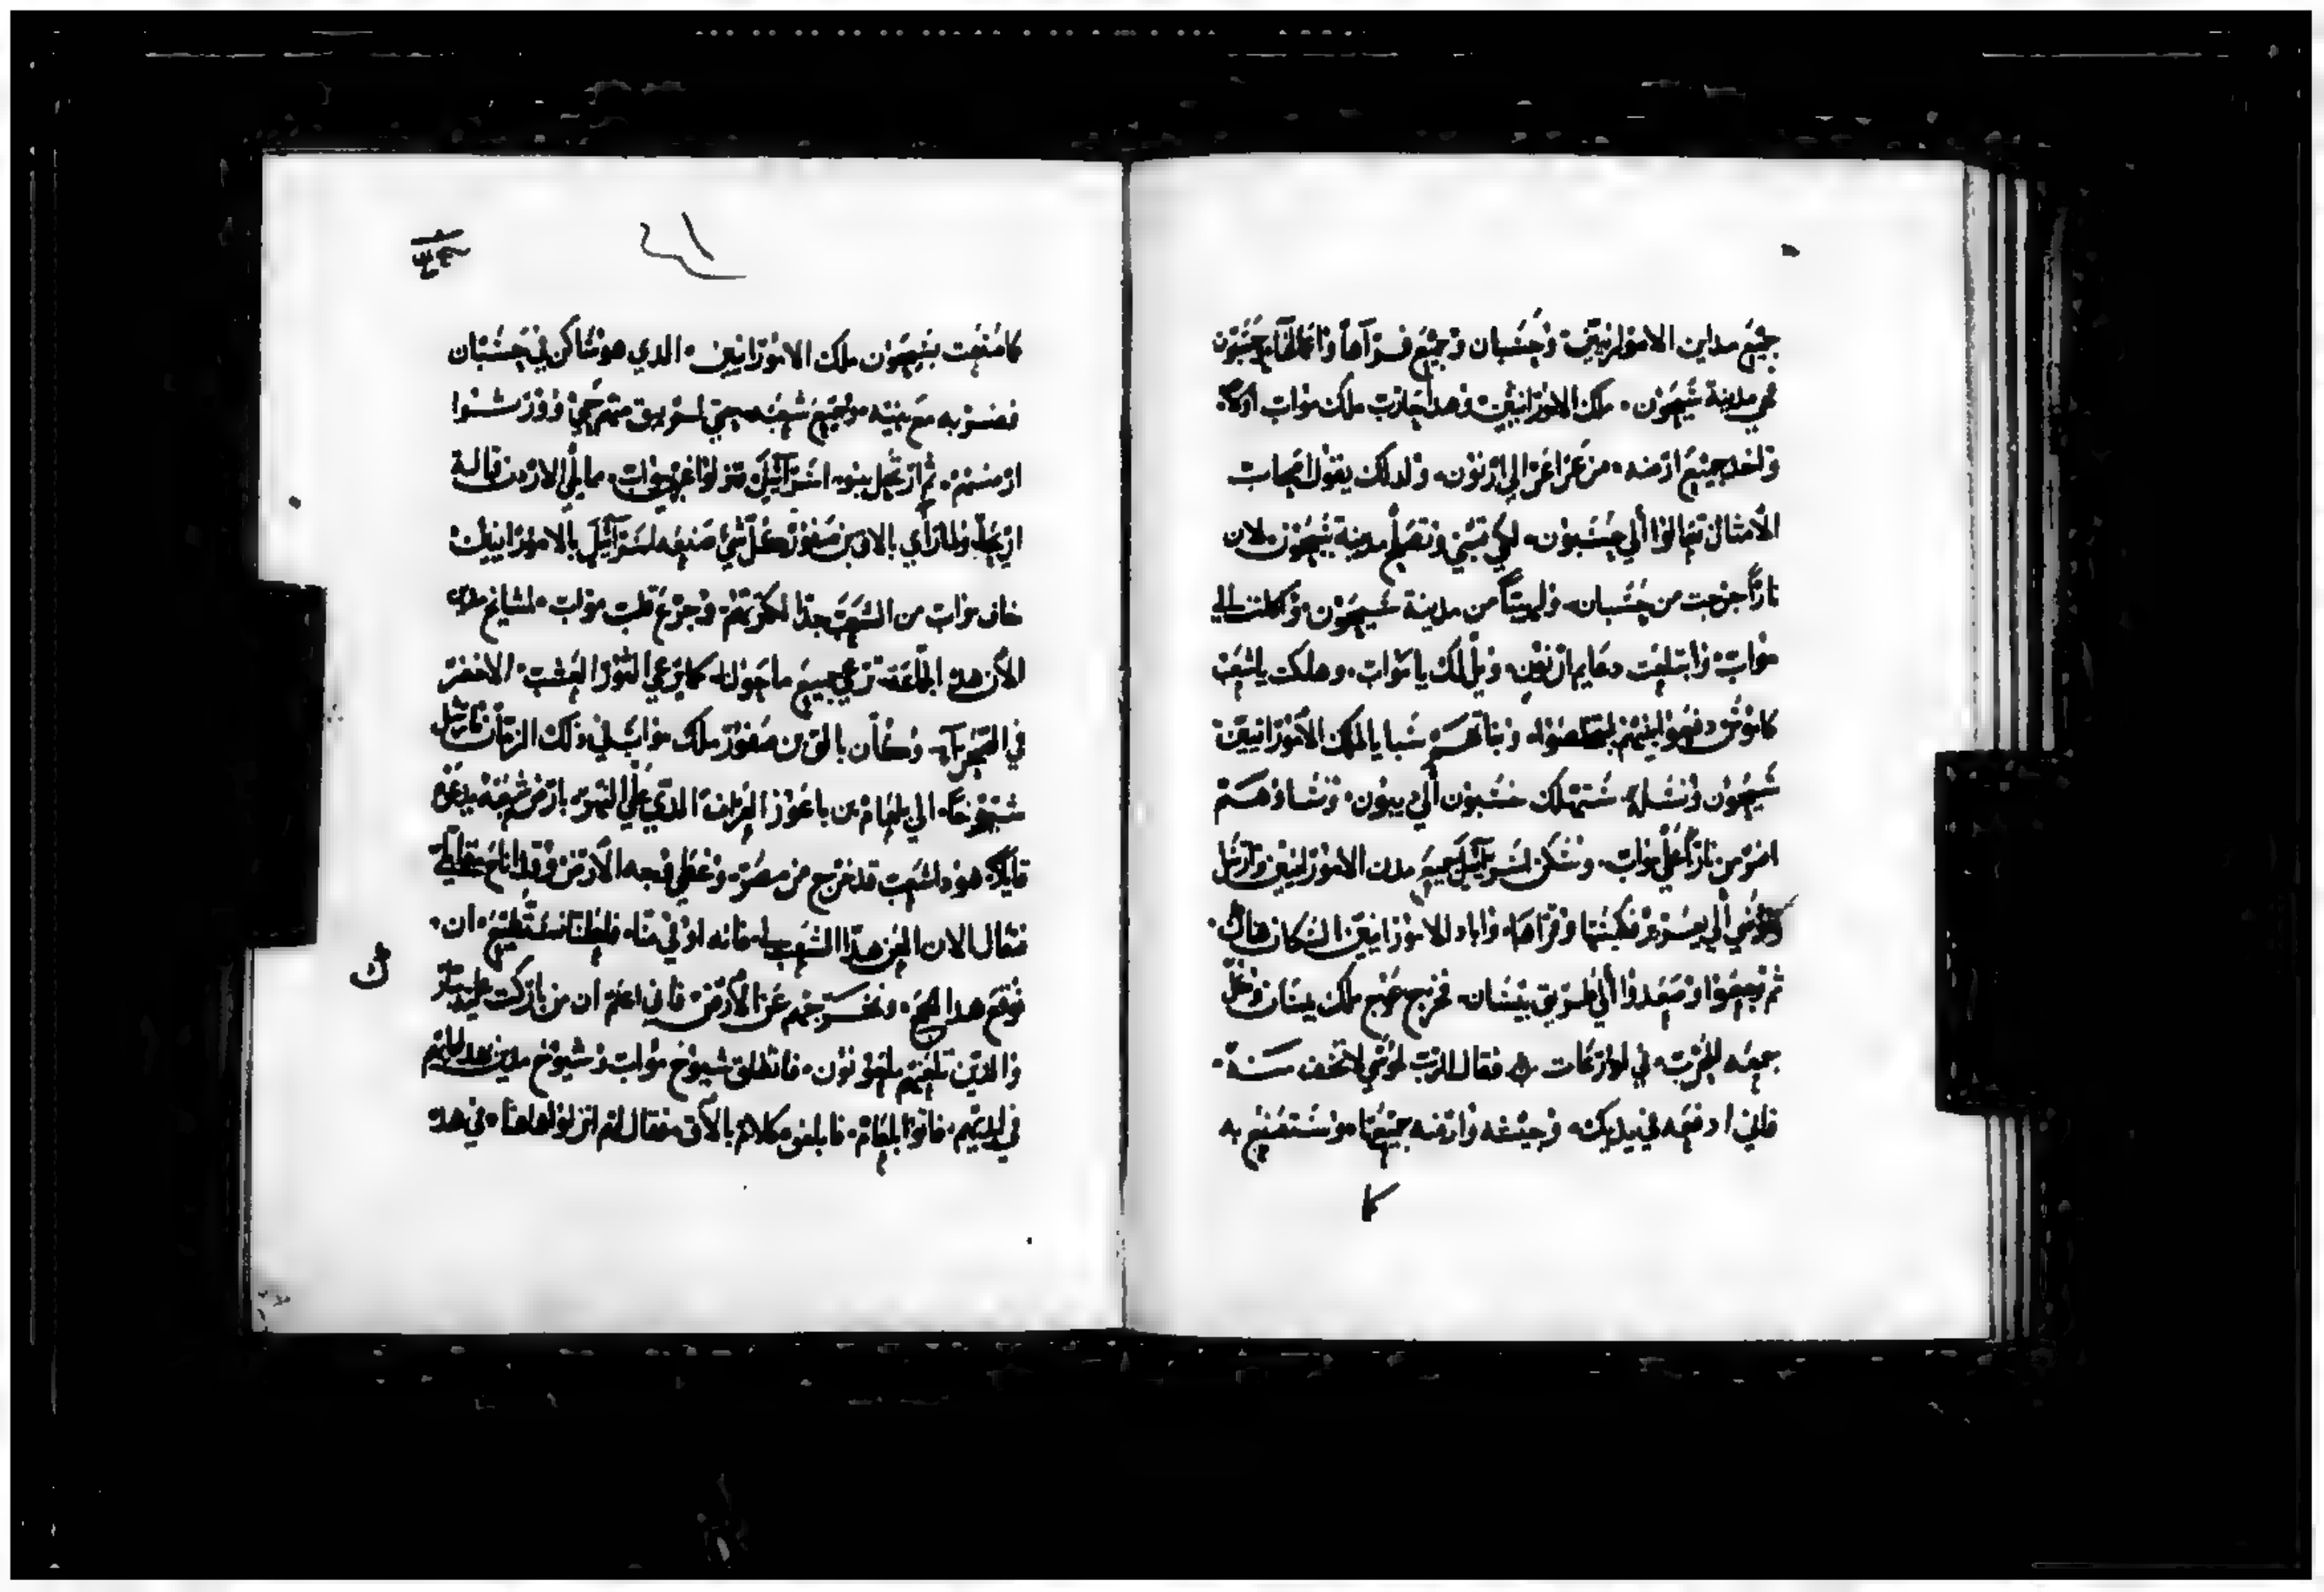 جميع مداين الامورانيين وحسبان وجميع قراها واعمالها حسبون
هي مدينة سيحون ملك الامورانيين وهدا حارب ملك مواب اولا
واخد جميع ارضه من عراعر الي ارنون ولدلك يقول اصحاب
الامثال تعالوا الي حسبون لكي تبني وتصلح مدينة سيحون لان
نارا خرجت من حسبان ولهيبا من مدينة سيحون واكلت الي
مواب وابتلعت دعايم ارنون ويل لك يا مواب وهلكت ياشعب
كاموش دفعوا بنيهم وبناتهم سبايا لملك الامورانيين
سيحون ونسلهم ستهلك حسبون الي ديبون ونساوهم
اضرمن نارا علي مواب وسكن اسرآئيل جميع مدن الامورانيين وارسل
موسي الي يعزير فكبسها وقراها واباد الامورانيين السكان هناك
ثم رجعوا وصعدوا الي طريق بيسان فخرج عوج ملك بيسان وكل
جمعه للحرب في ادرعات فقال الرب لموسي لا تخف منه
فاني ادفعه في يديك وجيشه وارضه جميعها وستصنع به
كما
كما صنعت بسيحون ملك الامورانيين الدي هو ساكن في حسبان
فضربه مع بنيه وجميع شعبه حتي لم يبق منهم حي وورثوا
ارضهم ثم ارتحل بنو اسرآئيل ونزلوا غربي مواب مما يلي الاردن قبالة
اريحا ولما راي بالاق بن صفور كل شي صنعه اسرآئيل بالامورانيين
خاف مواب من الشعب جدا لكثرتهم وجزع قلب مواب لمشايخ مدين
الان هده الجماعة ترعي جميع ما حولنا كما يرعي الثور العشب الاخضر
في الصحرآ وكان بالاق بن صفور ملك مواب في دلك الزمان فارسل
شيوخا الي بلعام بن باعور العراف الدي علي النهر بارض شعبه يدعوه
قايلا هودا شعب قد خرج من مصر وغطي وجه الارض وقد اناخ مقابلي
فتعال الان العن هدا الشعب فانه اقوي منا فلعلنا نستطيع ان
نوقع هدا الجمع ونخرجهم عن الارض فاني اعلم ان من باركت عليه يتبارك
والدين تلعنهم يلعنون فانطلق شيوخ مواب وشيوخ مدين
في ايديهم فاتوا بلعام فابلغوه كلام بالاق فقال لهم انزلوا هاهنا في هده